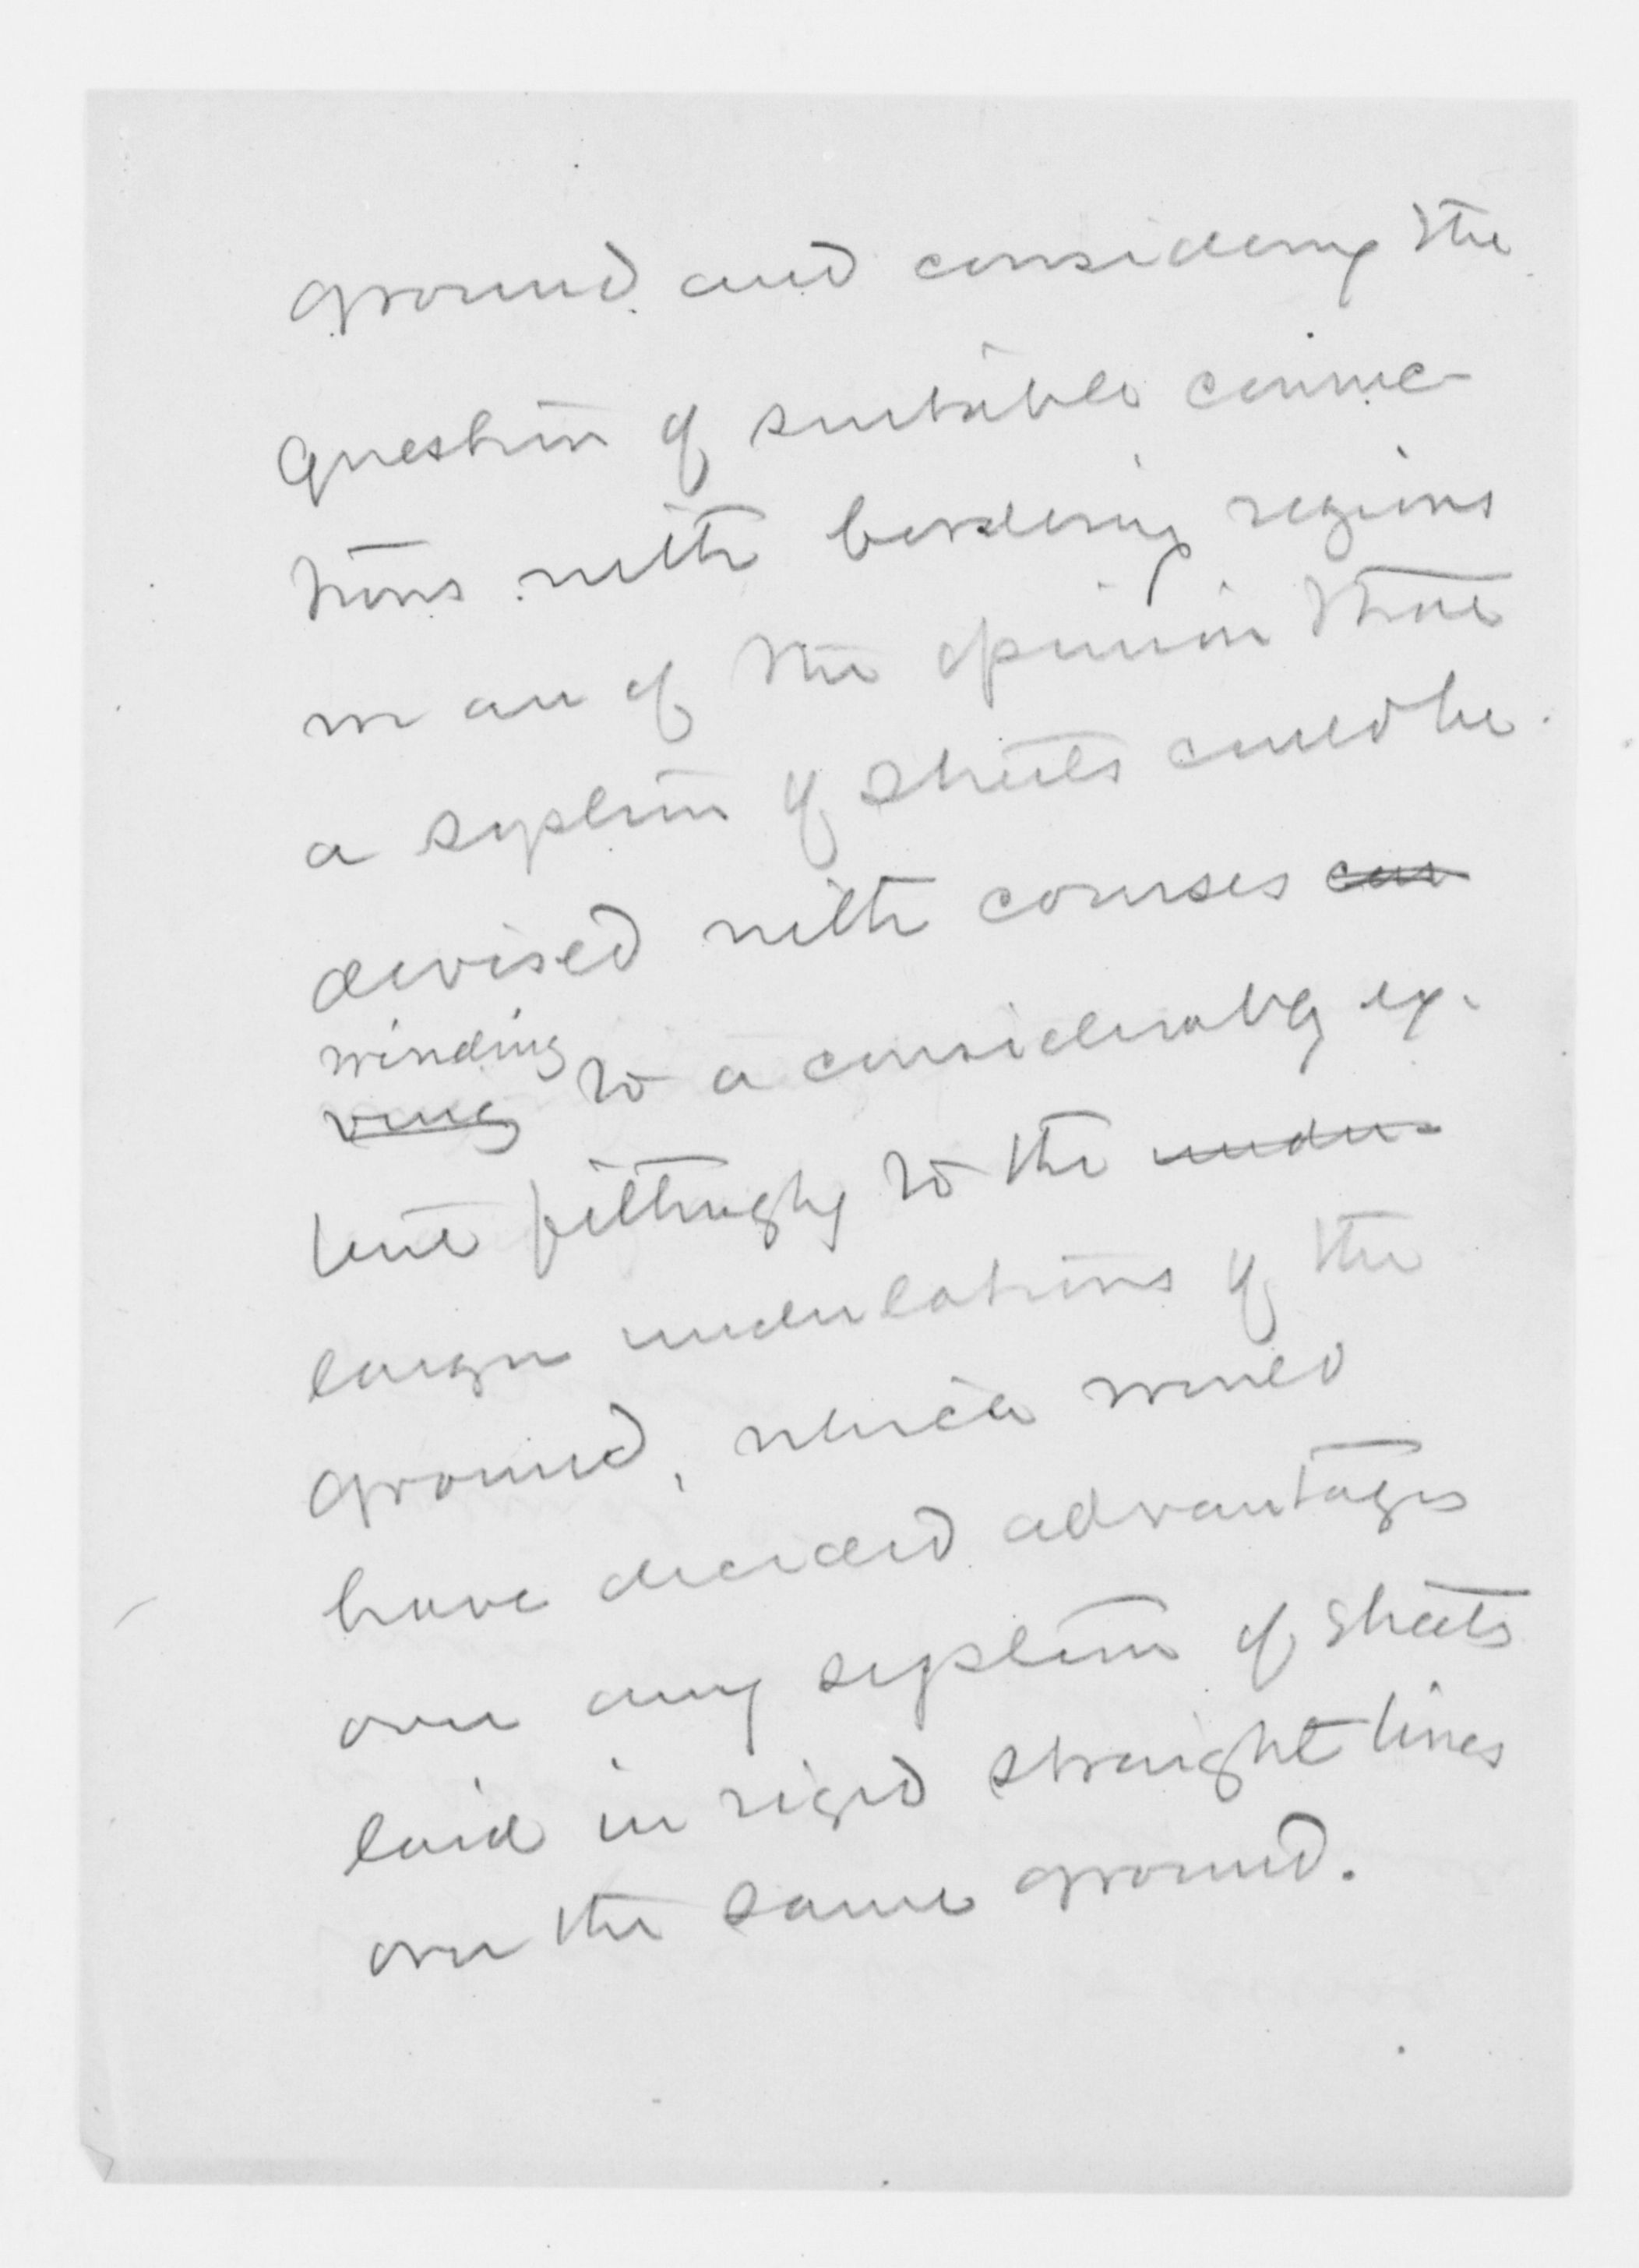 ground and considering the
question of suitable connec-
tions with bordering regions
we are of the opinion that
a system of streets could be
devised with courses cur
winding
ving to a considerably ex-
tent fittingly to the undu-
larger undulations of the
ground, which would
have decided advantages
over any system of streets
laid in rigid straight lines
over the same ground.